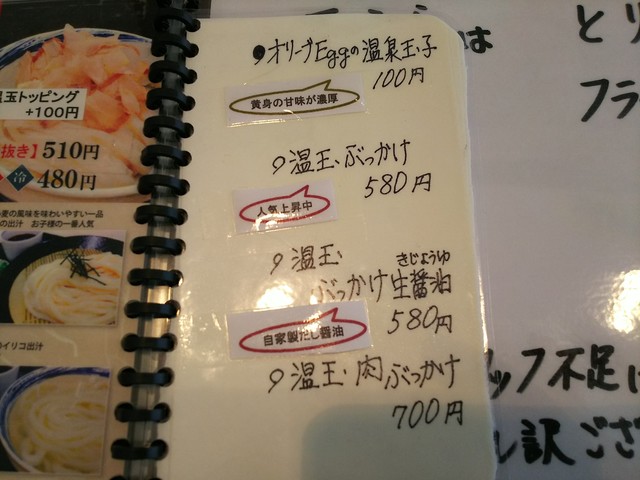 玉トッピング
+100円
抜き】510円
冷 480円
麦の風味を味わいやすい一品
の出汁 お子様の一番人気
のイリコ出汁
オリーブEggの温泉玉子
100円
黄身の甘味が濃厚
温玉ぶっかけ
580円
人気上昇中
温玉
きじょうゆ
ぶっかけ生醤油
580円
自家製だし醤油
温玉肉ぶっかけ
700円
は
とり
フラ
ッフ不足
し訳ござ